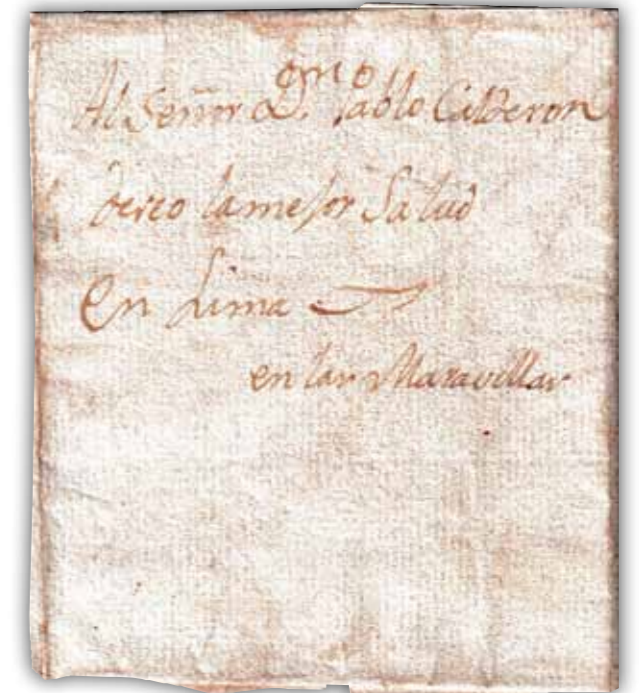 Al Señor D.ⁿ Pablo Calderon
deceo la mejor Salud
en Lima
en las Maravillas